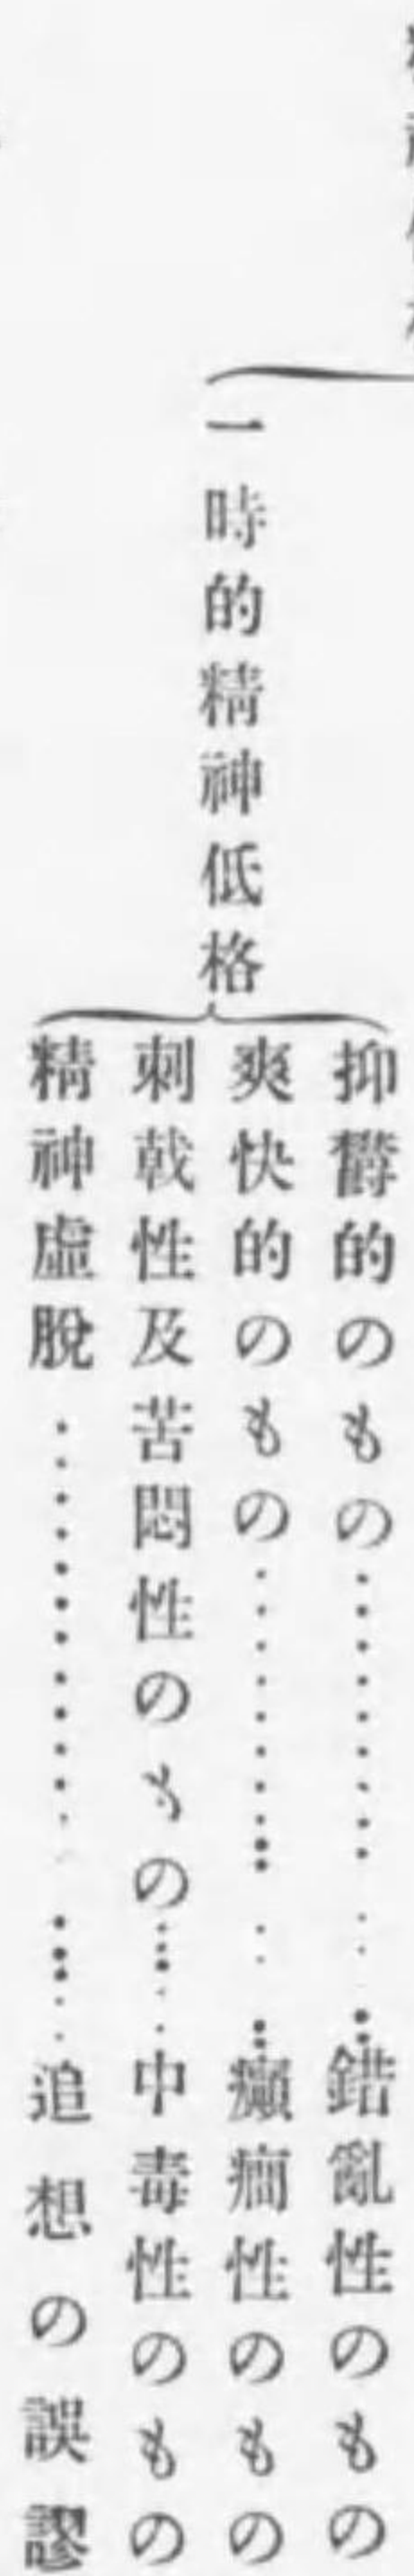 一時的精神低格
抑欝的のもの………錯亂性のもの
爽快的のもの………癲癇性のもの
刺戟性及苦悶性のもの……中毒性のもの
精神虛脫………追想の誤謬